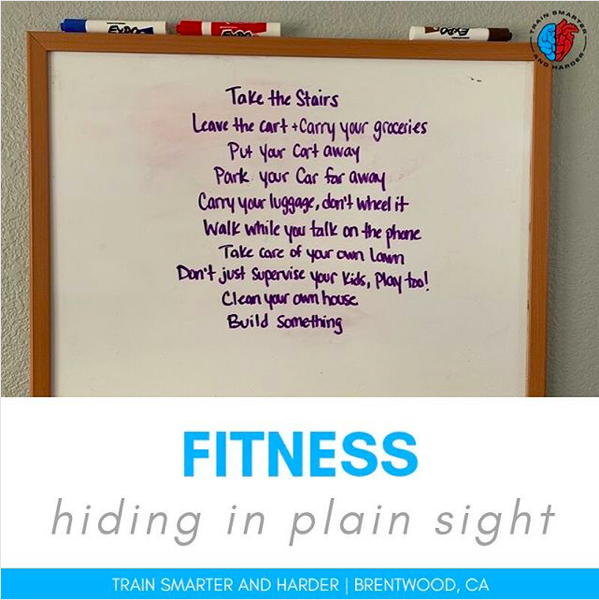 EXPO
EXPO
EXPO
TRAIN SMARTER
AND HARDER
Take the Stairs
Leave the cart + Carry your groceries
Put your Cart away
Park your Car far away
Carry your luggage, don't wheel it
Walk while you talk on the phone
Take care of your own Lawn
Don't just Supervise your kids, play too!
Clean your own house
Build Something
FITNESS
hiding in plain sight
TRAIN SMARTER AND HARDER | BRENTWOOD, CA